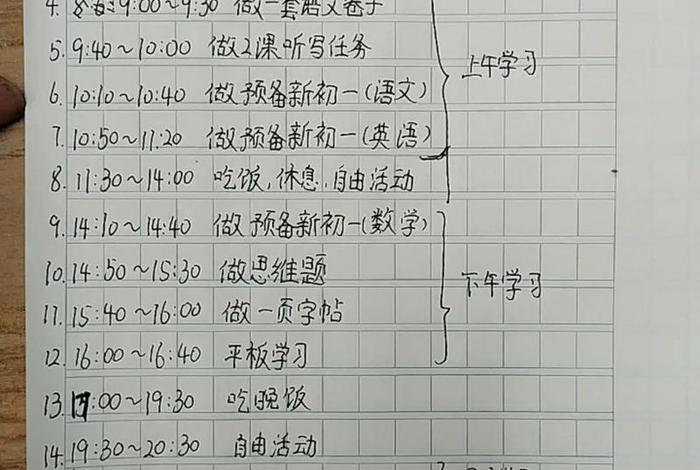 4. 9:00~9:30 做一套语文卷子
5. 9:40~10:00 做2课听写任务
上午学习
6. 10:10~10:40 做预备新初一(语文)
7. 10:50~11:20 做预备新初一(英语)
8. 11:30~14:00 吃饭,休息,自由活动
9. 14:10~14:40 做预备新初一(数学)
10. 14:50~15:30 做思维题
下午学习
11. 15:40~16:00 做一页字帖
12. 16:00~16:40 平板学习
13. :00~19:30 吃晚饭
14. 19:30~20:30 自由活动